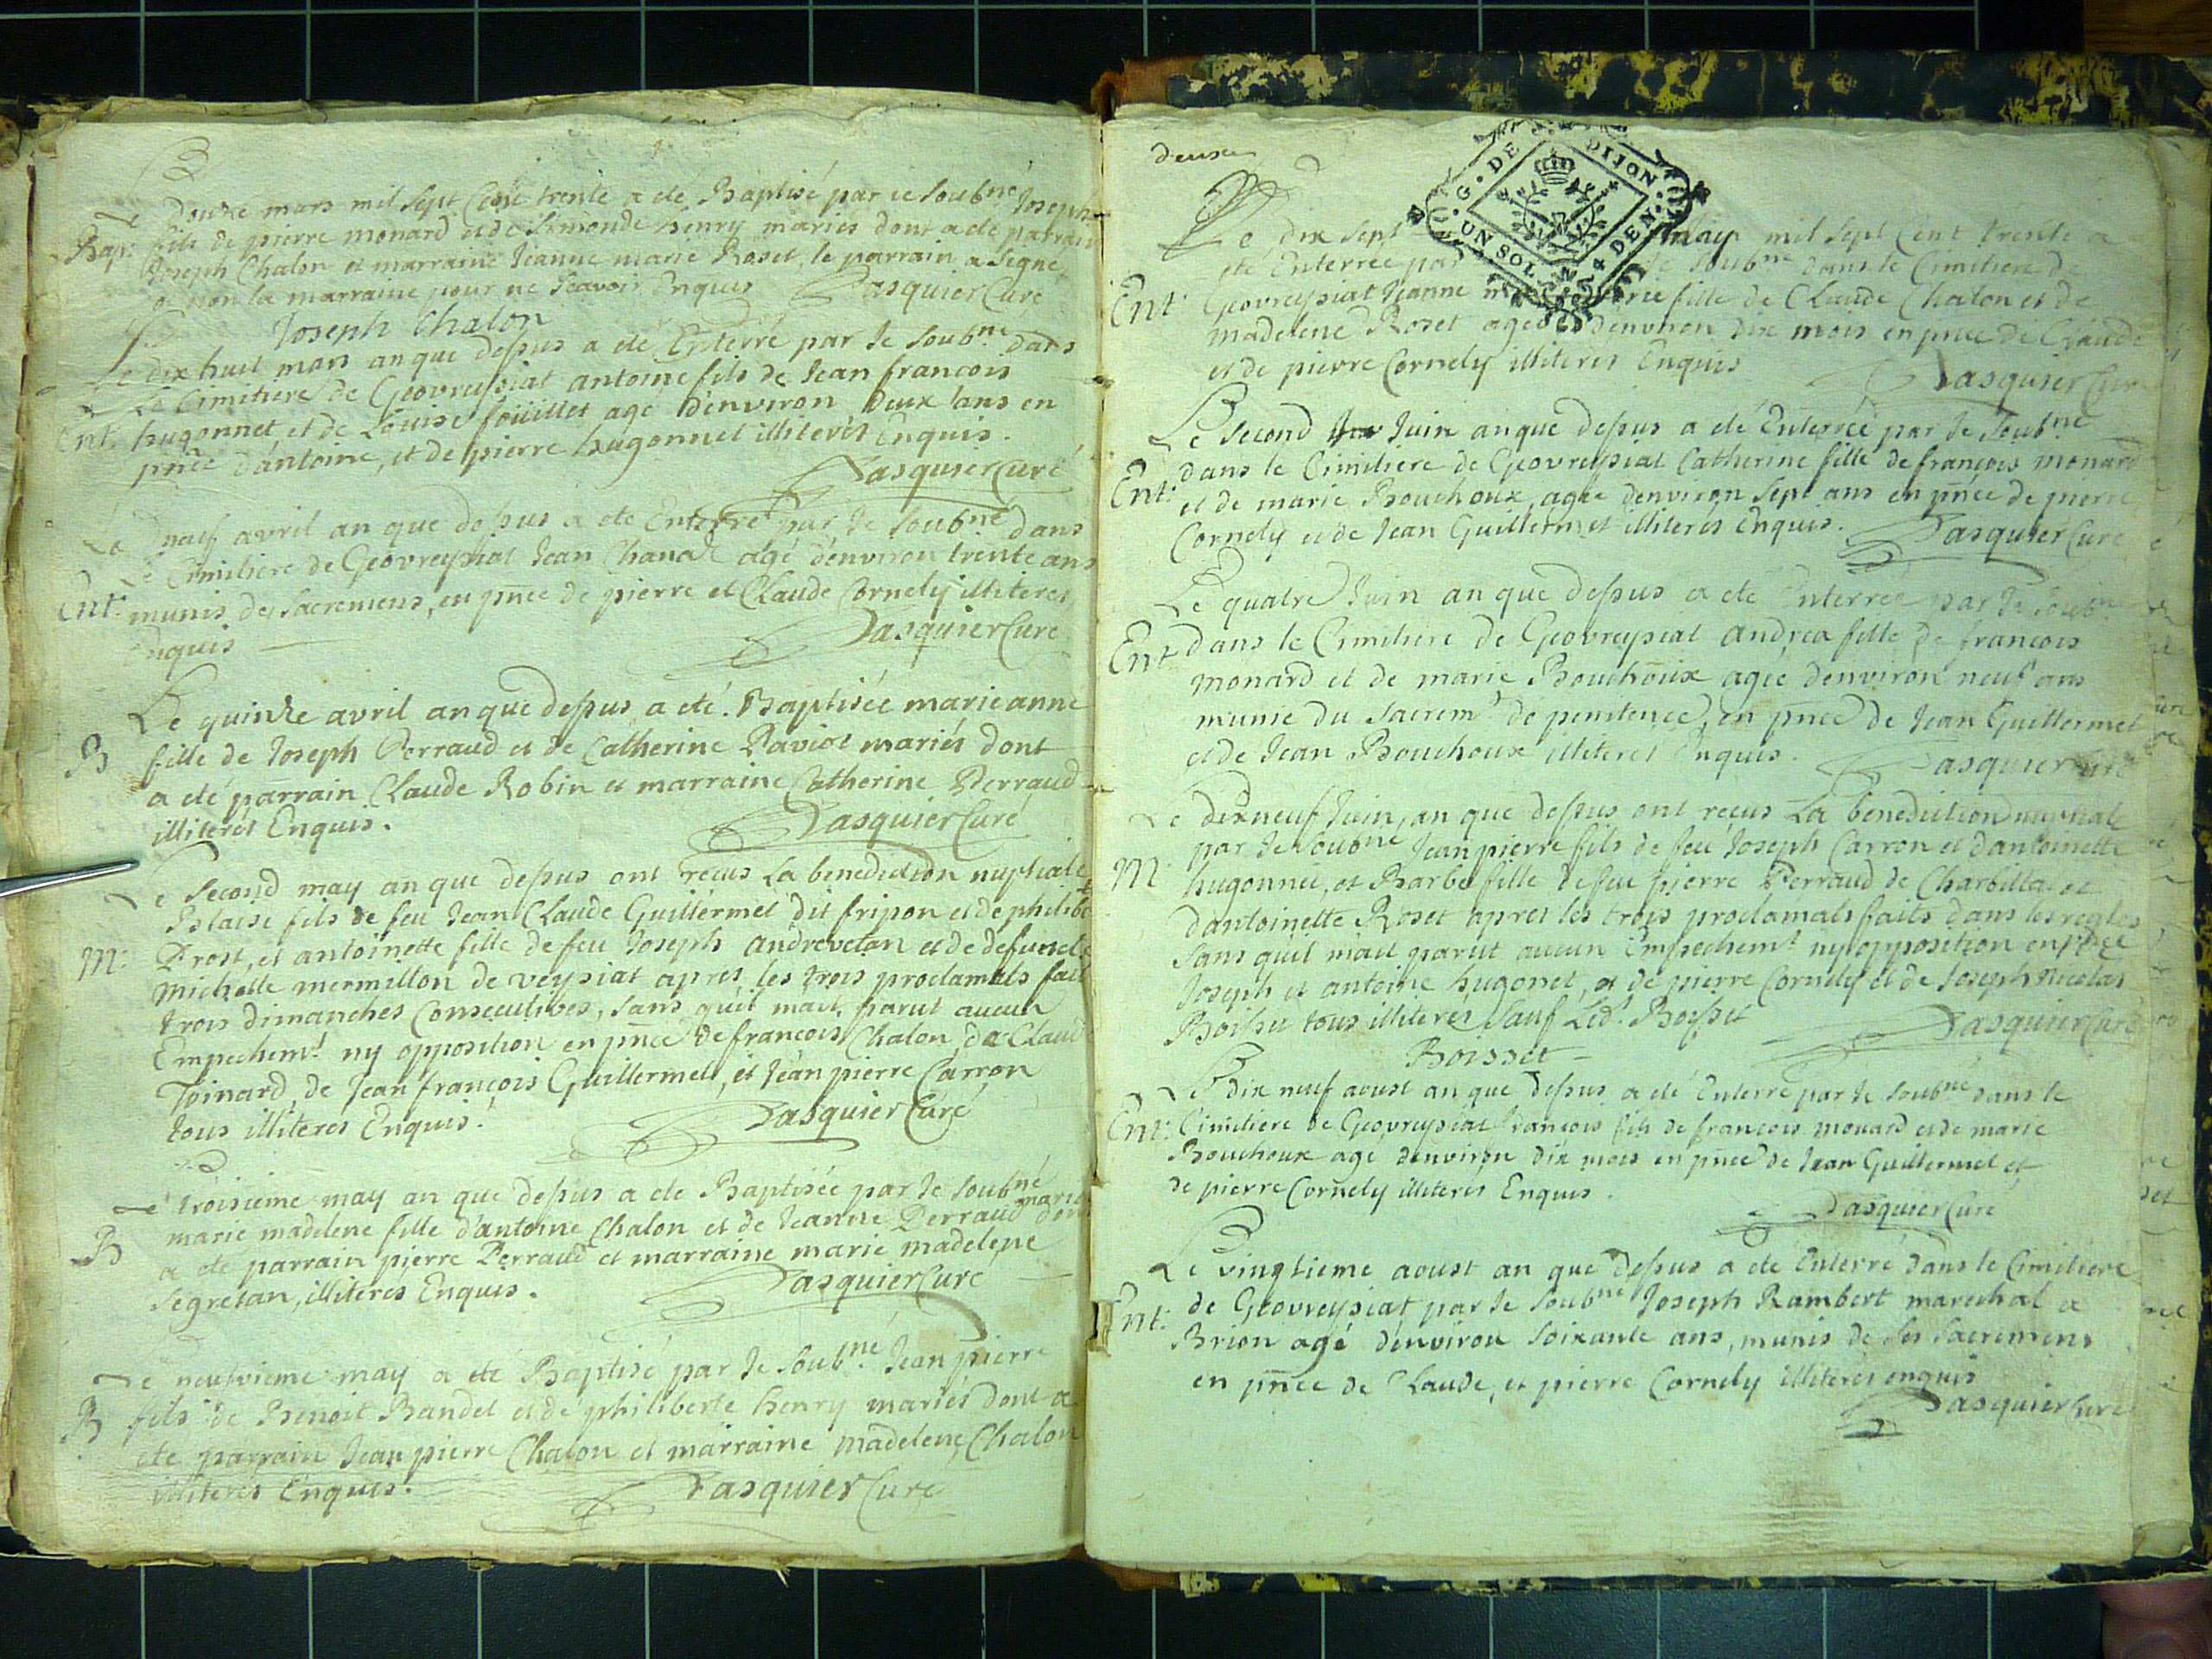 Le Douze mars mil sept Cent trente a eté Baptisé par ie soubné Joseph
Bap: fils de pierre monard et de Simonde henry mariés dont a eté parrain
Joseph Chalon et marraine Jeanne marie Roset, le parrain a signé,
et non la marraine pour ne scavoir Enquis Pasquier Curé
Joseph Chalon
Le dix huit mars an que dessus a eté Enterré par ie soubné dans
Le Cimitiere de Geovreyssiat antoine fils de Jean francois
Ent: hugonnet et de Louise fouillet agé d'environ deux ans en
pnce d'antoine, et de pierre hugonnet illiterés Enquis.
Pasquier Curé
Le neuf avril an que dessus a eté Enterré par ie soubné dans
Le Cimitiere de Geovreyssiat Jean Chanal agé d'environ trente ans
Ent: munis des sacremens, en pnce de pierre et Claude Cornely illiteres
Enquis
Pasquier Curé
Le quinze avril an que dessus a eté Baptisée marie anne
B fille de Joseph Perraud et de Catherine Paviot mariés dont
a eté parrain Claude Robin et marraine Catherine Perraud
illiterés Enquis.
Pasquier Curé
Le second may an que dessus ont recus La benediction nuptiale
Blaise fils de feu Jean Claude Guillermet dit fripon et de philibe
M: Prost, et antoinette fille de feu Joseph andrevetan et de defuncte
michelle mermillon de veysiat apres les trois proclamats fait
trois dimanches Consecutives, sans qu'il m'ait parut aucun
Empechemt ny opposition en pnce de francois Chalon, de Claude
Toinard, de Jean françois Guillermet, et Jean pierre Carron
tous illiteres Enquis.
Pasquier Curé
Le troisieme may an que dessus a eté Baptisée par ie soubné
marie madelene fille d'antoine Chalon et de Jeanne Perraud mariés dont
B a eté parrain pierre Perraud et marraine marie madelene
Segretan, illiterés Enquis.
Pasquier Curé
Le neufvieme may a eté Baptisé par ie soubné Jean pierre
B fils de Benoit Bandet et de philiberte henry mariés dont a
eté parrain Jean pierre Chalon et marraine madelene Chalon
illiteres Enquis.
Pasquier Curé
deux
G. DE DIJON
UN SOL 4 DEN.
Le dix sept may mil sept Cent trente a
eté Enterrée par ie soubné dans le Cimitiere de
Ent: Geovreysiat Jeanne marie fille de Claude Chalon et de
madelene Roset agée d'environ dix mois en pnce de Claude
et de pierre Cornely illiterés Enquis
Pasquier Curé
Le second Juin an que dessus a eté Enterrée par ie soubné
Ent: dans le Cimitiere de Geovreysiat Catherine fille de francois monard
et de marie Bouchoux, agée d'environ sept ans en pnce de pierre
Cornely et de Jean Guillermet illiterés Enquis.
Pasquier Curé
Le quatre Juin an que dessus a eté Enterrée par ie soubné
Ent dans le Cimitiere de Geovreysiat andrea fille de francois
monard et de marie Bouchoux agée d'environ neuf ans
munie du sacremt de penitence, en pnce de Jean Guillermet
et de Jean Bouchoux illiteres Enquis.
Pasquier Curé
Le dix neuf Juin, an que dessus ont recus La benediction nuptiale
par ie soubné Jean pierre fils de feu Joseph Carron et d'antoinette
M hugonnet, et Barbe fille de feu pierre Perraud de Charbillat et
d'antoinette Roset apres les trois proclamats faits dans les regles
sans qu'il m'ait parut aucun Empechemt ny opposition en pnce
Joseph et antoine hugonet, et de pierre Cornely et de Joseph Nicolas
Boisset tous illiteres sauf Led. Boisset
Pasquier Curé
Boisset
Le dix neuf aoust an que dessus a eté Enterré par ie soubné dans le
Ent: Cimitiere de Geovreysiat francois fils de francois monard et de marie
Bouchoux agé d'environ dix mois en pnce de Jean Guillermet et
de pierre Cornely illiteres Enquis.
Pasquier Curé
Le vingtieme aoust an que dessus a eté Enterré dans le Cimitiere
Ent: de Geovreysiat par ie soubné Joseph Rambert marechal a
Brion agé d'environ soixante ans, munis de ses sacremens
en pnce de Claude, et pierre Cornely illiterés enquis
Pasquier Curé